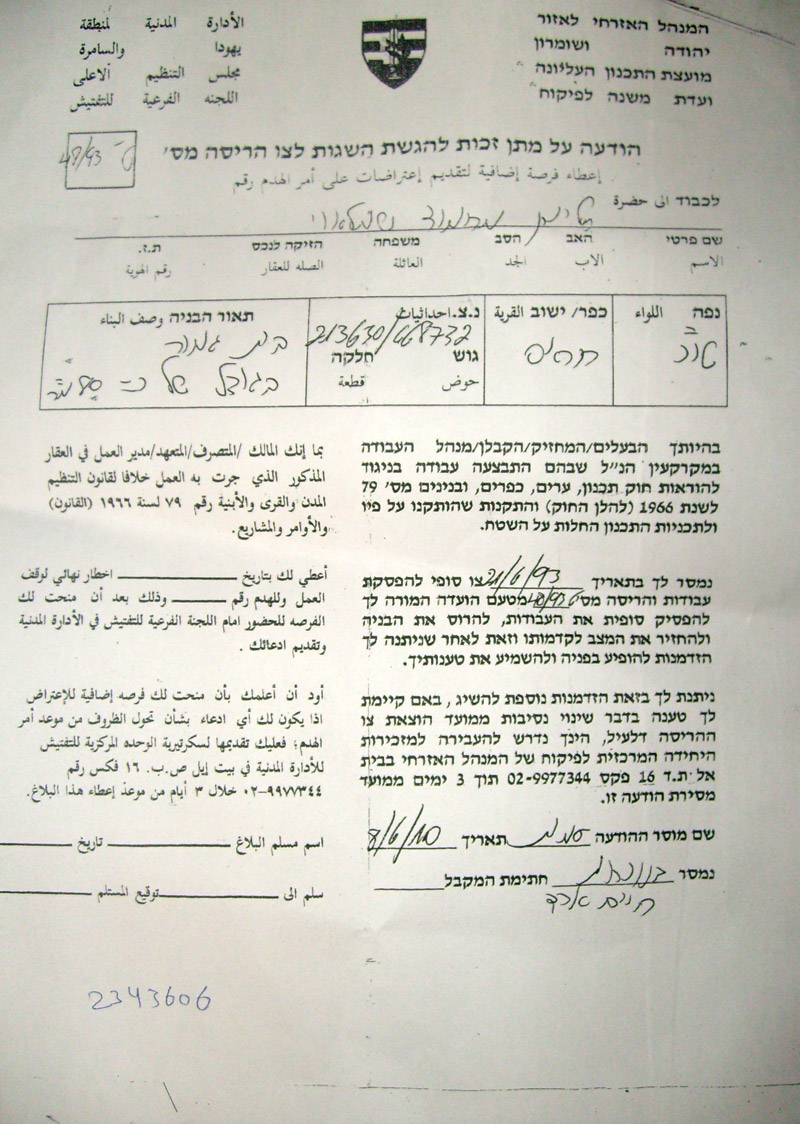 המנהל האזרחי לאזור
יהודה ושומרון
מועצת התכנון העליונה
ועדת משנה לפיקוח
الأدارة المدنية لمنطقة
يهودا والسامرة
مجلس التنظيم الأعلى
اللجنه الفرعية للتفتيش
הודעה על מתן זכות להגשת השגות לצו הריסה מס'
48/93
إعطاء فرصة إضافية لتقديم إعتراضات على أمر الهدم رقم
לכבוד الى حضرة
שם פרטי האב הסב משפחה הזיקה לנכס ת.ז.
الاسم الاب الجد العائلة الصله للعقار رقم الهوية
נפה اللواء
כפר/ ישוב القرية
נ.צ.احداثيات
213630/668732
גוש חלקה
حوض قطعة
תאור הבניה وصف البناء
בית
בגודל של כ-
בהיותך הבעלים/המחזיק/הקבלן/מנהל העבודה
במקרקעין הנ"ל שבהם התבצעה עבודה בניגוד
להוראות חוק תכנון, ערים, כפרים, ובנינים מס' 79
לשנת 1966 (להלן החוק) והתקנות שהותקנו על פיו
ולתכניות התכנון החלות על השטח.
נמסר לך בתאריך 21/6/93 צו סופי להפסקת
עבודות והריסה מס' 48/93 מטעם הועדה המורה לך
להפסיק סופית את העבודות, להרוס את הבניה
ולהחזיר את המצב לקדמותו וזאת לאחר שניתנה לך
הזדמנות להופיע בפניה ולהשמיע את טענותיך.
ניתנת לך בזאת הזדמנות נוספת להשיג, באם קיימת
לך טענה בדבר שינוי נסיבות ממועד הוצאת צו
ההריסה דלעיל, הינך נדרש להעבירה למזכירות
היחידה המרכזית לפיקוח של המנהל האזרחי בבית
אל ת.ד 16 פקס 02-9977344 תוך 3 ימים ממועד
מסירת הודעה זו.
שם מוסר ההודעה תאריך 8/6/10
נמסר חתימת המקבל
بما إنك المالك /المتصرف/المتعهد/مدير العمل في العقار
المذكور الذي جرت به العمل خلافا لقانون التنظيم
المدن والقرى والأبنية رقم ٧٩ لسنة ١٩٦٦ (القانون)
والأوامر والمشاريع.
أعطي لك بتاريخ اخطار نهائي لوقف
العمل وللهدم رقم وذلك بعد أن منحت لك
الفرصه للحضور امام اللجنة الفرعية للتفتيش في الأدارة المدنية
وتقديم ادعائك.
أود أن أعلمك بأن منحت لك فرصه إضافية للإعتراض
اذا يكون لك أي ادعاء بشأن تحول الظروف من موعد أمر
الهدم؛ فعليك تقديمها لسكرتيرية الوحده المركزية للتفتيش
للأدارة المدنية في بيت إيل ص.ب. ١٦ فكس رقم
٠٢-٩٩٧٧٣٤٤ خلال ٣ أيام من موعد إعطاء هذا البلاغ.
اسم مسلم البلاغ تاريخ
سلم الى توقيع المستلم
2343606